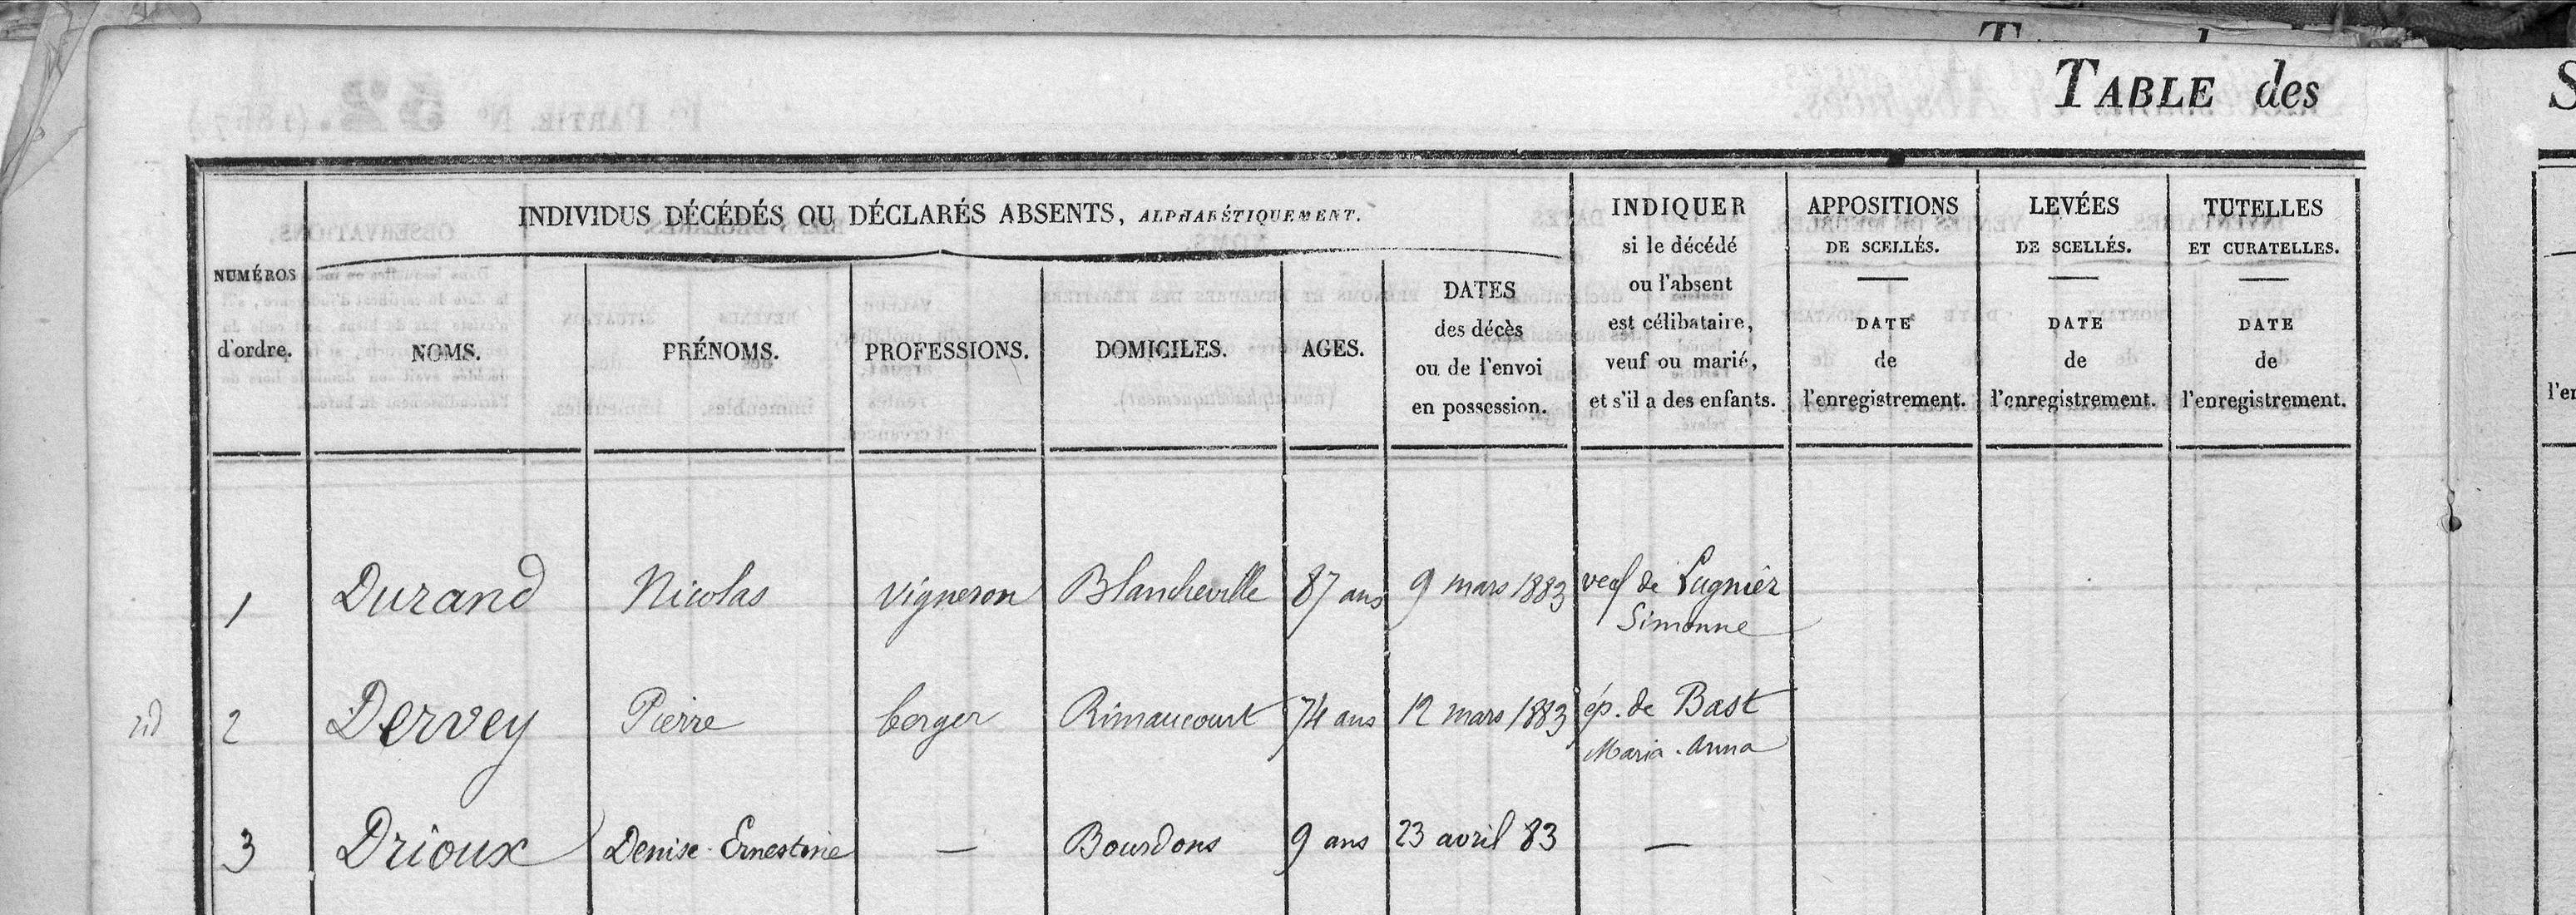 TABLE des
INDIVIDUS DÉCÉDÉS OU DÉCLARÉS ABSENTS, ALPHABÉTIQUEMENT.
NUMÉROS
d'ordre.
NOMS.
PRÉNOMS.
PROFESSIONS.
DOMICILES.
AGES.
DATES
des décès
ou de l'envoi
en possession.
INDIQUER
si le décédé
ou l'absent
est célibataire,
veuf ou marié,
et s'il a des enfants.
APPOSITIONS
DE SCELLÉS.
DATE
de
l'enregistrement.
LEVÉES
DE SCELLÉS.
DATE
de
l'enregistrement.
TUTELLES
ET CURATELLES.
DATE
de
l'enregistrement.
1 Durand Nicolas vigneron Blancheville 87 ans 9 mars 1883 veuf de Lugnier
Simonne
2 Dervey Pierre berger Rimaucourt 74 ans 12 mars 1883 ép. de Bast
Maria-Anna
3 Drioux Denise-Ernestine — Bourdons 9 ans 23 avril 83 —